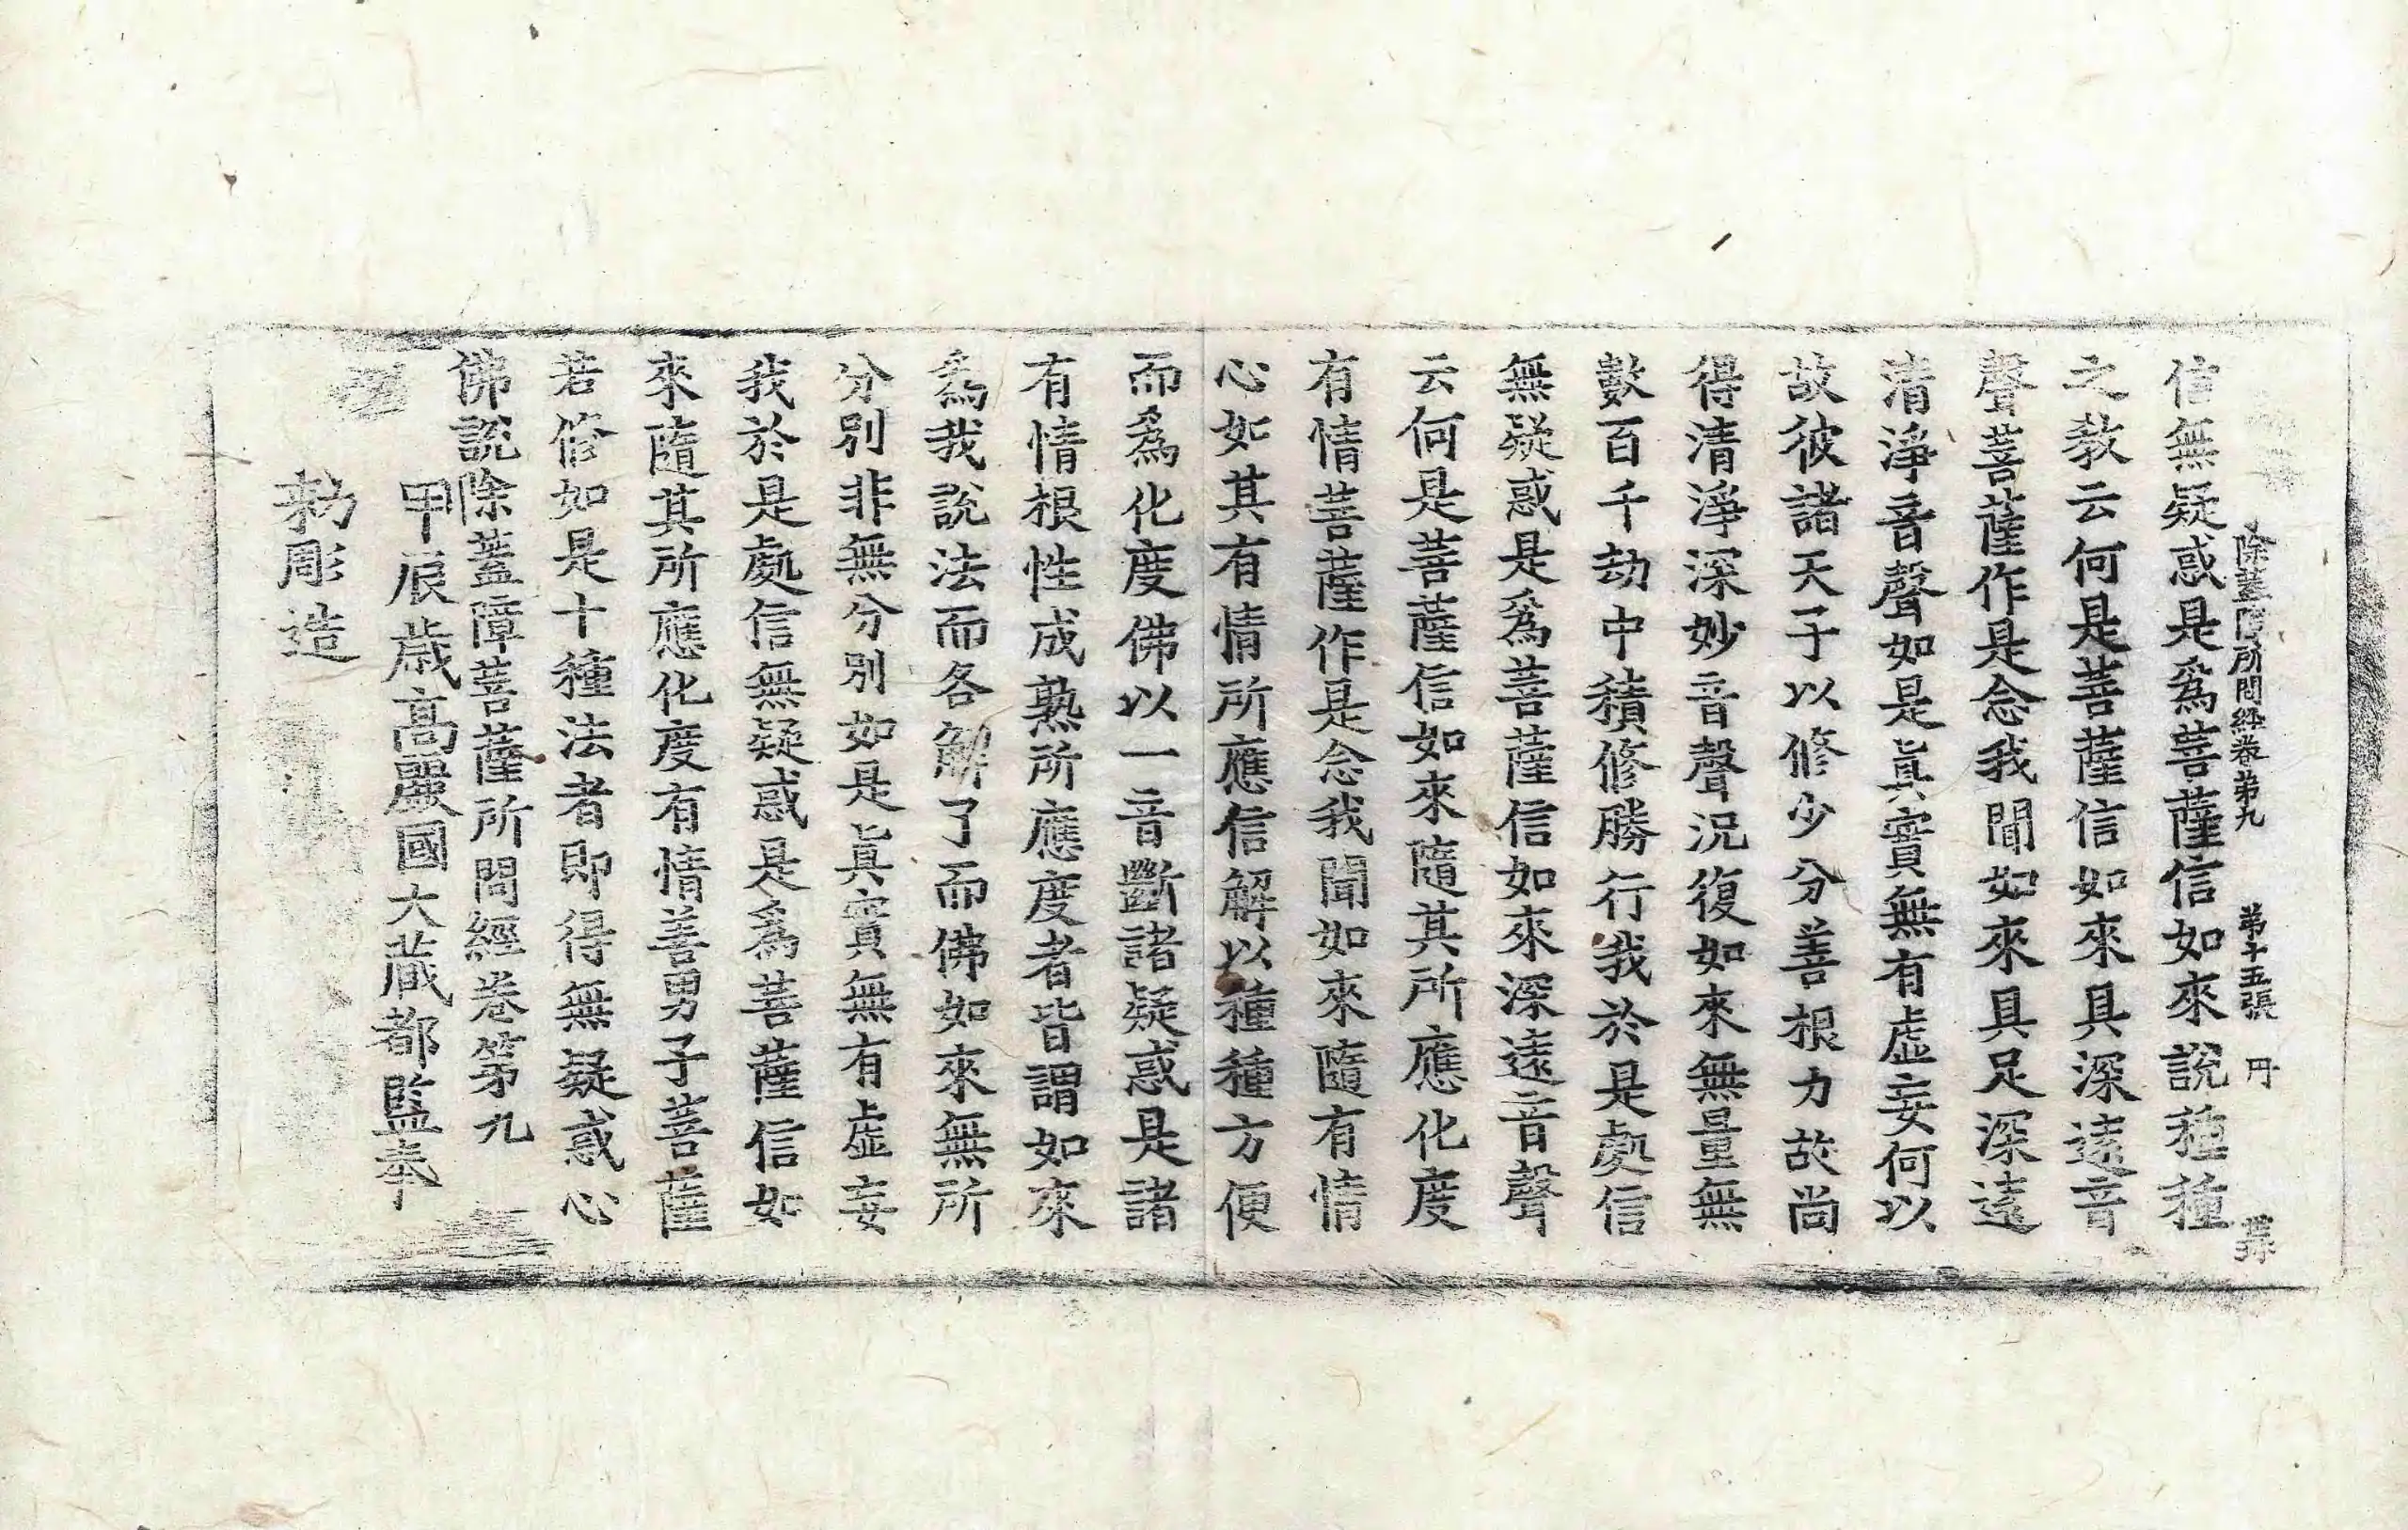 除蓋障所問經卷第九 第十五張 丹
信無疑惑是爲菩薩信如來說種種
之教云何是菩薩信如來具深遠音
聲菩薩作是念我聞如來具足深遠
清淨音聲如是眞實無有虛妄何以
故彼諸天子以修少分善根力故尚
得清淨深妙音聲況復如來無量無
數百千劫中積修勝行我於是處信
無疑惑是爲菩薩信如來深遠音聲
云何是菩薩信如來隨其所應化度
有情菩薩作是念我聞如來隨有情
心如其有情所應信解以種種方便
而爲化度佛以一音斷諸疑惑是諸
有情根性成熟所應度者皆謂如來
爲我說法而各解了而佛如來無所
分別非無分別如是眞實無有虛妄
我於是處信無疑惑是爲菩薩信如
來隨其所應化度有情善男子菩薩
若修如是十種法者即得無疑惑心
佛說除蓋障菩薩所問經卷第九
甲辰歲高麗國大藏都監奉
勅彫造